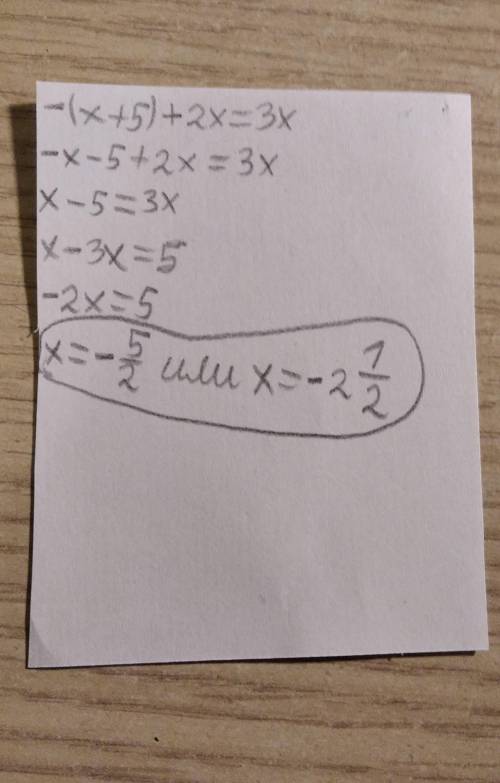 -(x+5)+2x=3x
-x-5+2x=3x
x-5=3x
x-3x=5
-2x=5
x=-5/2 или x=-2 1/2